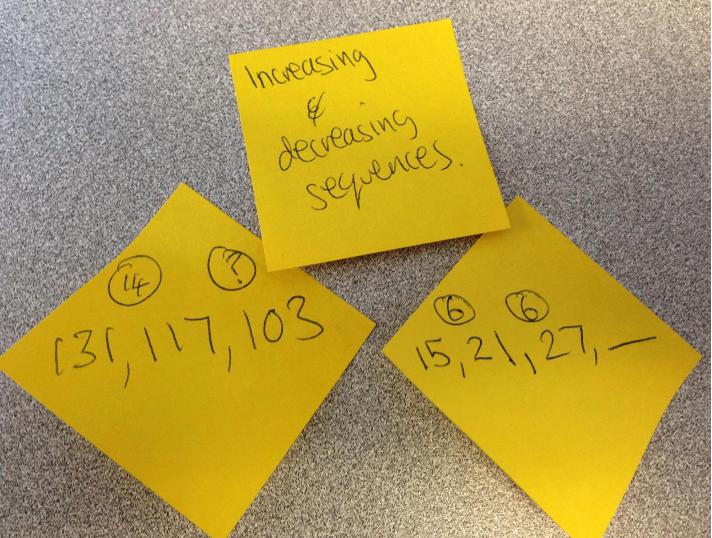 Increasing
&
decreasing
sequences.
14 ?
131, 117, 103
6 6
15, 21, 27, —